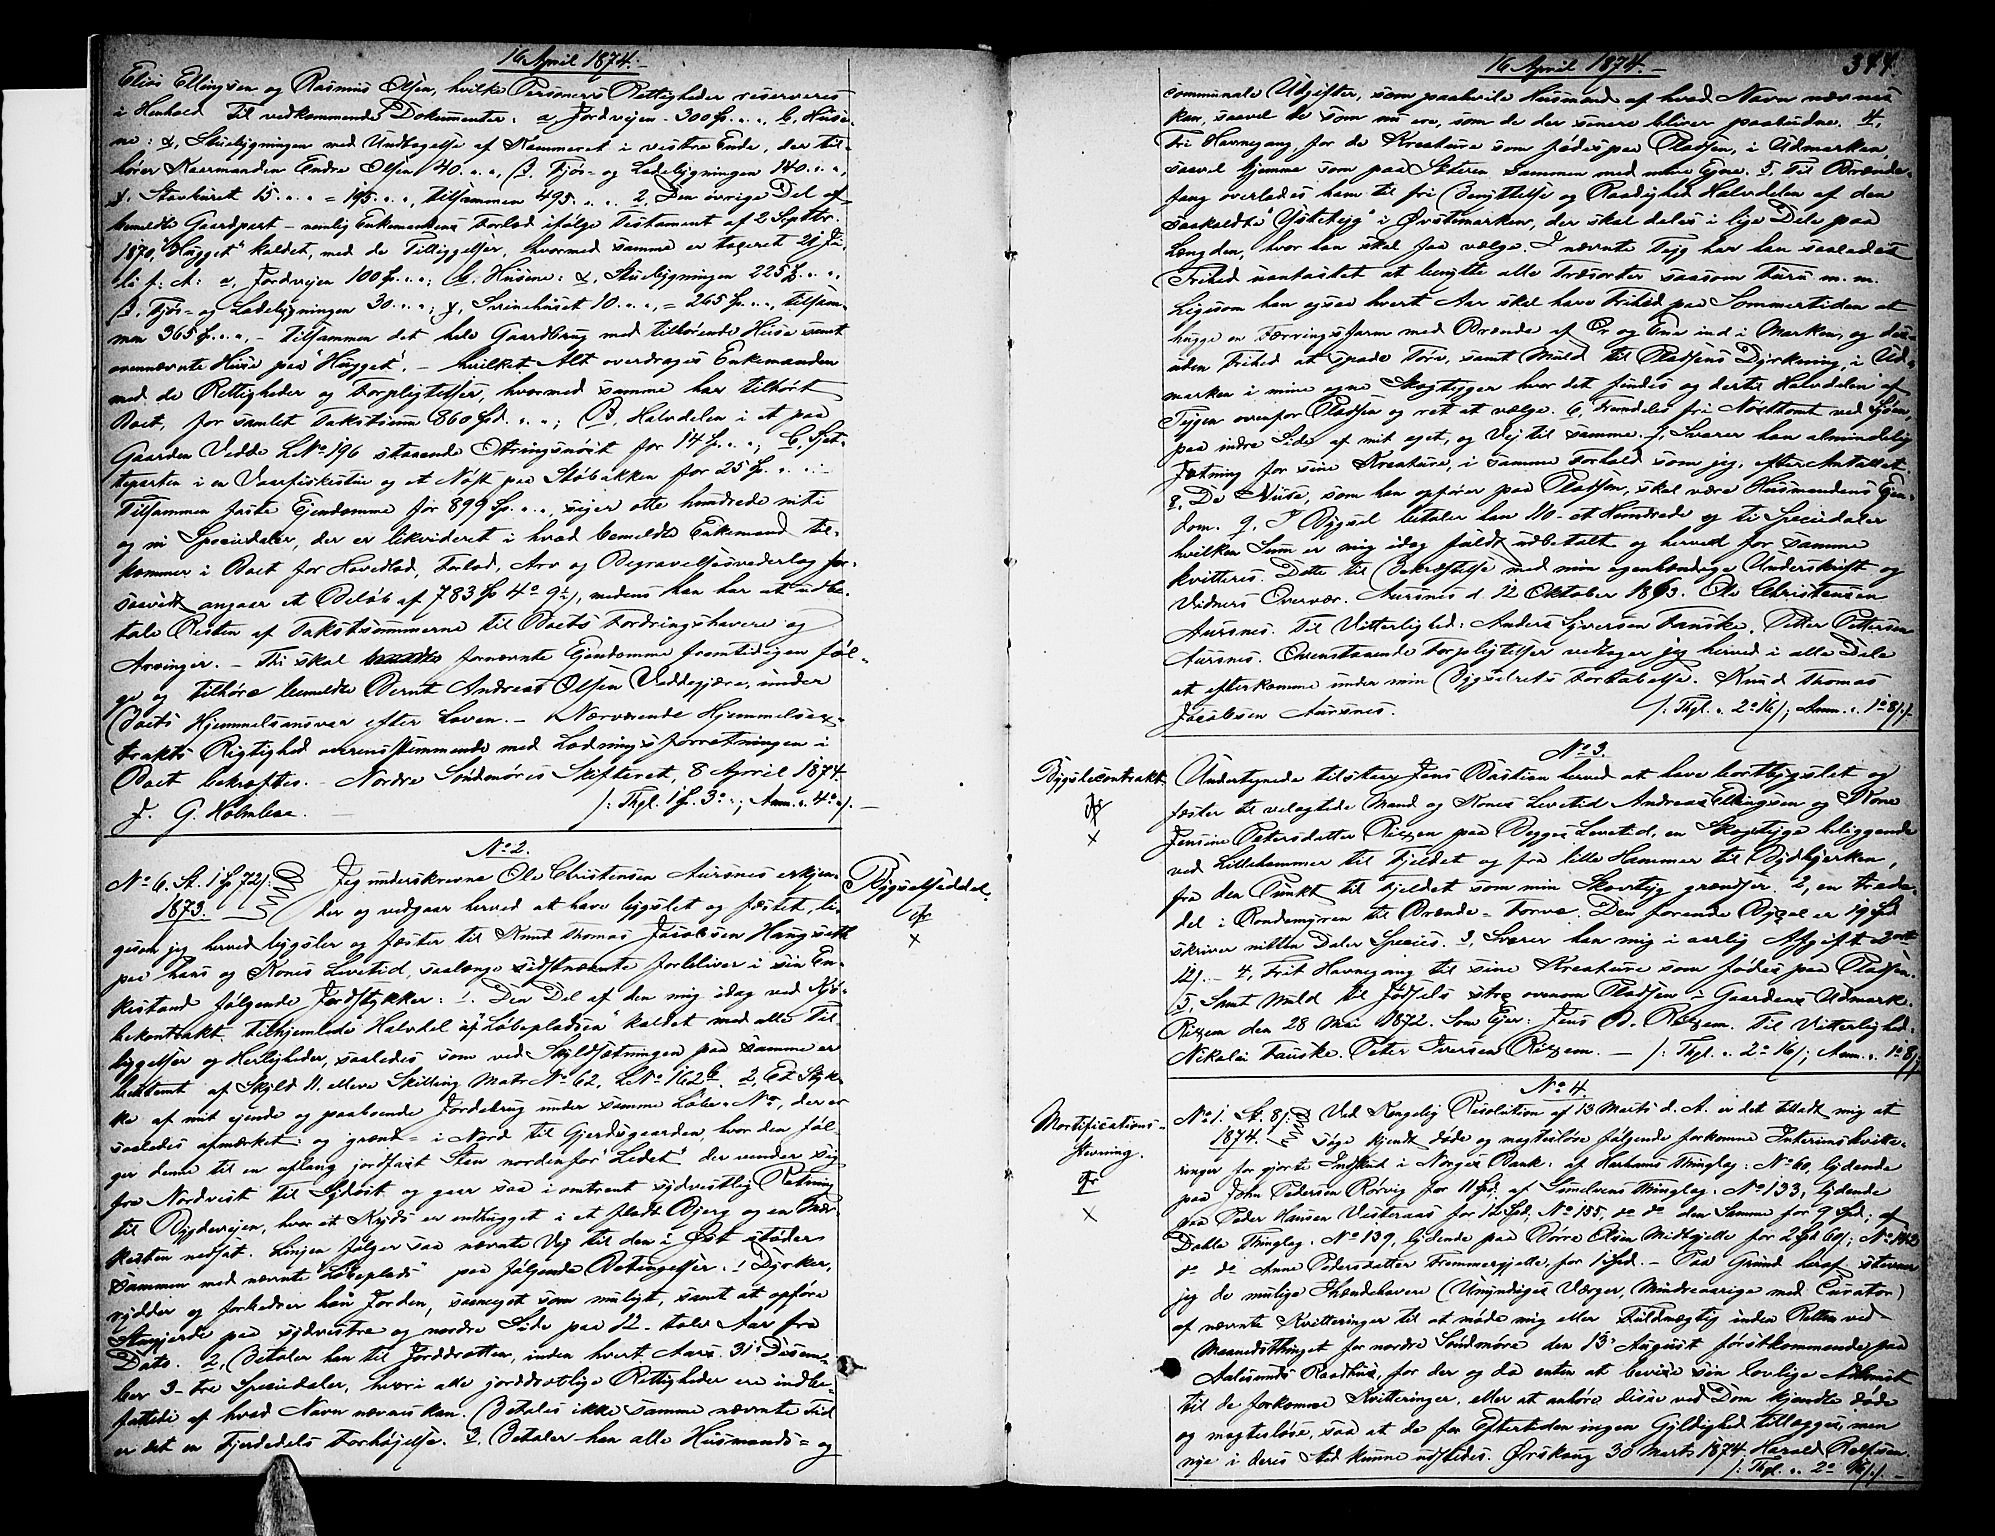 16 April 1874.
Elias Ellingsen og Rasmus Olsen, hvilke Personers Rettigheder reserveres
i Henhold til vedkommende Dokumenter: a, Jordvejen - 300 Sp. " ", b, Huse-
ne: α, Stuebygningen med Undtagelse af Kammeret i vestre Ende, der til-
hører Kaarmanden Endre Olsen 40. " ", β. Fjøs- og Ladebygningen 140. " ",
γ. Stavburet 15. " " = 195. " ", tilsammen 495. " ". 2, Den øvrige Del af
bemeldte Gaardpart - nemlig Enkemandens Forlod ifølge Testament af 2 Septbr.
1870, "Hugget" kaldet, med de Tilliggelser, hvormed samme er taxeret 21 Ju-
li f. A: a, Jordvejen 100 Sp. " "; b. Husene: α, Stuebygningen 225 Sp. " ",
β. Fjøs- og Ladebygningen 30. " "; γ, Svinehuset 10. " ", = 265 Sp. " ", tilsam-
men 365 Sp. " ", - tilsammen det hele Gaardbrug med tilhørende Huse samt
ovennævnte Huse paa "Hugget", - hvilket Alt overdrages Enkemanden
med de Rettigheder og Forpligtelser, hvormed samme har tilhørt
Boet, for samlet Takstsum 860 Spd. " "; B, Halvdelen i et paa
Gaarden Vedde LNo 196 staaende Ottringsnøst for 14 Sp. " "; C, Sjet-
teparten i en Vaarfiskestue og et Nøst paa Støbakken for 25 Sp. " " -
Tilsammen faste Ejendomme for 899 Sp. " ", siger otte hundrede niti
og ni Speciedaler, der er likvideret i hvad bemeldte Enkemand til-
kommer i Boet for Hovedlod, Forlod, Arv og Begravelsesvederlag for-
saavidt angaar et Beløb af 783 Sp 4 o 9 s, medens han har at udbe-
tale Resten af Takstsummerne til Boets Fordringshavere og
Arvinger. - Thi skal fornævnte Ejendomme fremtidigen føl-
ge og tilhøre bemeldte Bernt Andreas Olsen Veddegjære, under
Boets Hjemmelsansvar efter Loven. - Nærværende Hjemmelsex-
trakts Rigtighed overensstemmende med Lodningsforretningen i
Boet bekræftes. - Nordre Søndmørs Skifteret, 8 April 1874.
J. G. Holmboe. /: Thgl. 1 Sp. 3 o "; Ann. " 4 o " /. -
No 2.
No 6. St. 1 Sp 72 /. Jeg underskrevne Ole Christensen Aursnes erkjen-
1873. der og vedgaar herved at have bygslet og fæstet, li-
gesom jeg herved bygsler og fæster til Knud Thomas Jacobsen Haugseth
paa hans og Kones Levetid, saalænge sidstnævnte forbliver i sin En-
kestand følgende Jordstykker: 1. Den Del af den mig idag ved Kjø-
bekontrakt tilhjemlede Halvdel af "Løbepladsen" kaldet med alle Til-
liggelser og Herligheder, saaledes som ved Skyldsætningen paa samme er
bestemt af Skyld 11. elleve Skilling Matr No 62, LNo 162 b. 2, Et Styk-
ke af mit ejende og paaboende Jordebrug under samme Løbe-No, der er
saaledes afmærket: og grænd- i Nord til Gjerdsgaarden, hvor den føl-
ger denne til en aflang jordfast Sten nordenfor "Ledet" der vender sig
fra Nordvest til Sydøst og gaar saa i omtrent sydvestlig Retning
til Bygdevejen, hvor et Kryds er indhugget i et fladt Bjerg og en Mær-
kesten nedsat. Linjen følger saa nævnte Vej til den i Øst støder
sammen med nævnte "Løbeplads" paa følgende Betingelser: 1 Dyrker,
rydder og forbedrer han Jorden, saameget som muligt, samt at opføre
Stengjerde paa sydvestre og nordre Side paa 12 - tolv Aar fra
Dato. 2, Betaler han til Jorddrotten, inden hvert Aars 31 Desem-
ber 3 - tre Speciedaler, hvori alle jorddrotlige Rettigheder ere indbe-
fattede af hvad Navn nævnes kan. Betales ikke samme nævnte Tid
er det en Fjerdedels Forhøjelse. 3, Betaler han alle Husmands- og
Bygselseddel.
16 April 1874. - 344.
communale Udgifter, som paahvile Husmænd af hvad Navn nævnes
kan, saavel de som nu ere, som de der senere bliver paabudne. 4,
Fri Havnegang, for de Kreature som fødes paa Pladsen, i Udmarken,
saavel hjemme som paa Sæteren sammen med mine Egne. 5, Til Brænde-
fang overlades ham til fri Benyttelse og Raadighed Halvdelen af den
saakaldte "Ystetejg" i Øvstemarken, der skal deles i lige Dele paa
Længden, hvor han skal faa vælge. I nævnte Tejg har han saaledes
Frihed uantastet at benytte alle Træsorter saasom Furu m. m.
Ligesom han ogsaa hvert Aar skal have Frihed paa Sommertiden at
hugge en Færringsfarm med Brænde af Or og Ener ind i Marken, og des-
uden Frihed at spade Torv, samt Muld til Pladsens Dyrkning, i Ud-
marken i mine egne Skogtejger hvor det findes og dertil Halvdelen af
Tejgen ovenfor Pladsen og ret at vælge. 6, Fremdeles fri Nøsttomt ved Søen,
paa indre Side af mit eget, og Vej til samme. 7, Svarer han almindelig
Jætning for sine Kreature, i samme Forhold som jeg, efter Antallet.
8, De Huse, som han opfører paa Pladsen, skal være Husmandens Ejen-
dom. 9. I Bygsel betaler han 110 - et Hundrede og ti Speciedaler
hvilken Sum er mig idag fuldt udbetalt og herved for samme
kvitteres. Dette til Bekræftelse med min egenhændige Underskrift og
Vidners Overvær. Aursnes d. 12 Oktober 1863. Ole Christensen
Aursnes. Til Vitterlighed: Anders Iversen Fauske. Petter Pettersen
Aursnes. Ovenstaaende Forpligtelser vedtager jeg herved i alle Dele
at efterkomme under min Bygselrets Fortabelse. Knud Thomas
Jacobsen Aursnes. /: Thgl. " 2 o 16 /; Ann. " 1 o 8 /. /.
No 3.
Bygslecontrakt Undertegnede tilstaar Jens Bastian herved at have bortbygslet og
fæster til velagtede Mand og Kones Levetid Andreas Ellingsen og Kone
Jensine Petersdatter Riksem paa Begges Levetid, en Skogtejge beliggende
ved Lillehammer til Fjeldet og fra lille Hammer til Bødbjerken,
fra den Punkt til Fjeldet som min Skovtejg grændser. 2, en Trede-
del i Rondemyren til Brænde-Torve. Den forende Bygsel er 19 Spd
skriver nitten Daler Species. 3, Svarer han mig i aarlig Afgift 2 ort
12 /. - 4, Frit Havnegang til sine Kreature som fødes paa Pladsen.
5, Samt Muld til Fødsels strø ovenom Pladsen i Gaardens Udmark.
Riksem den 28 Mai 1872. Som Ejer: Jens B. Riksem. Til Vitterlighed:
Nikolai Fauske. Peter Iversen Riksem. - /: Thgl. " 2 o 16 /; Ann. " 1 o 8 /. /.
No 4.
Mortifications-
Stevning.
No 1. St. 8 /. Ved Kongelig Resolution af 13 Marts d. A. er det tilladt mig at
1874. søge kjendt døde og magtesløse følgende forkomne Interimskvitte-
ringer for gjorte Indskud i Norges Bank: af Harhams Thinglag: No 60, lydende
paa John Pedersen Rørvig for 11 Spd; af Simelvens Thinglag: No 133, lydende
paa Peder Hansen Vesteraas for 12 Spd; No 155, do do den Samme for 9 Spd; af
Dahle Thinglag: No 139, lydende paa Børre Olsen Midtgjelle for 2 Spd 60 /; No 142
do do Anne Pedersdatter Fremmergjelle, for 1 Spd. - Paa Grund heraf stevner
jeg de mulige Ihændehavere (Umyndiges Værger, Mindreaarige med Curator)
af nævnte Kvitteringer til at møde mig eller Fuldmægtig inden Retten ved
Maanedsthinget for nordre Søndmøre den 13 August førstkommende paa
Aalesunds Raadhus, for der og da enten at bevise sin lovlige Adkomst
til de forkomne Kvitteringer, eller at anhøre disse ved Dom kjendte døde
og magtesløse, saa at de for Eftertiden ingen Gyldighed tillægges, men
nye i deres Sted kunne udstedes. Ørskoug 30 Marts 1874. Harald Rolfsen.
/: Thgl. " 2 o 16 /. /. -